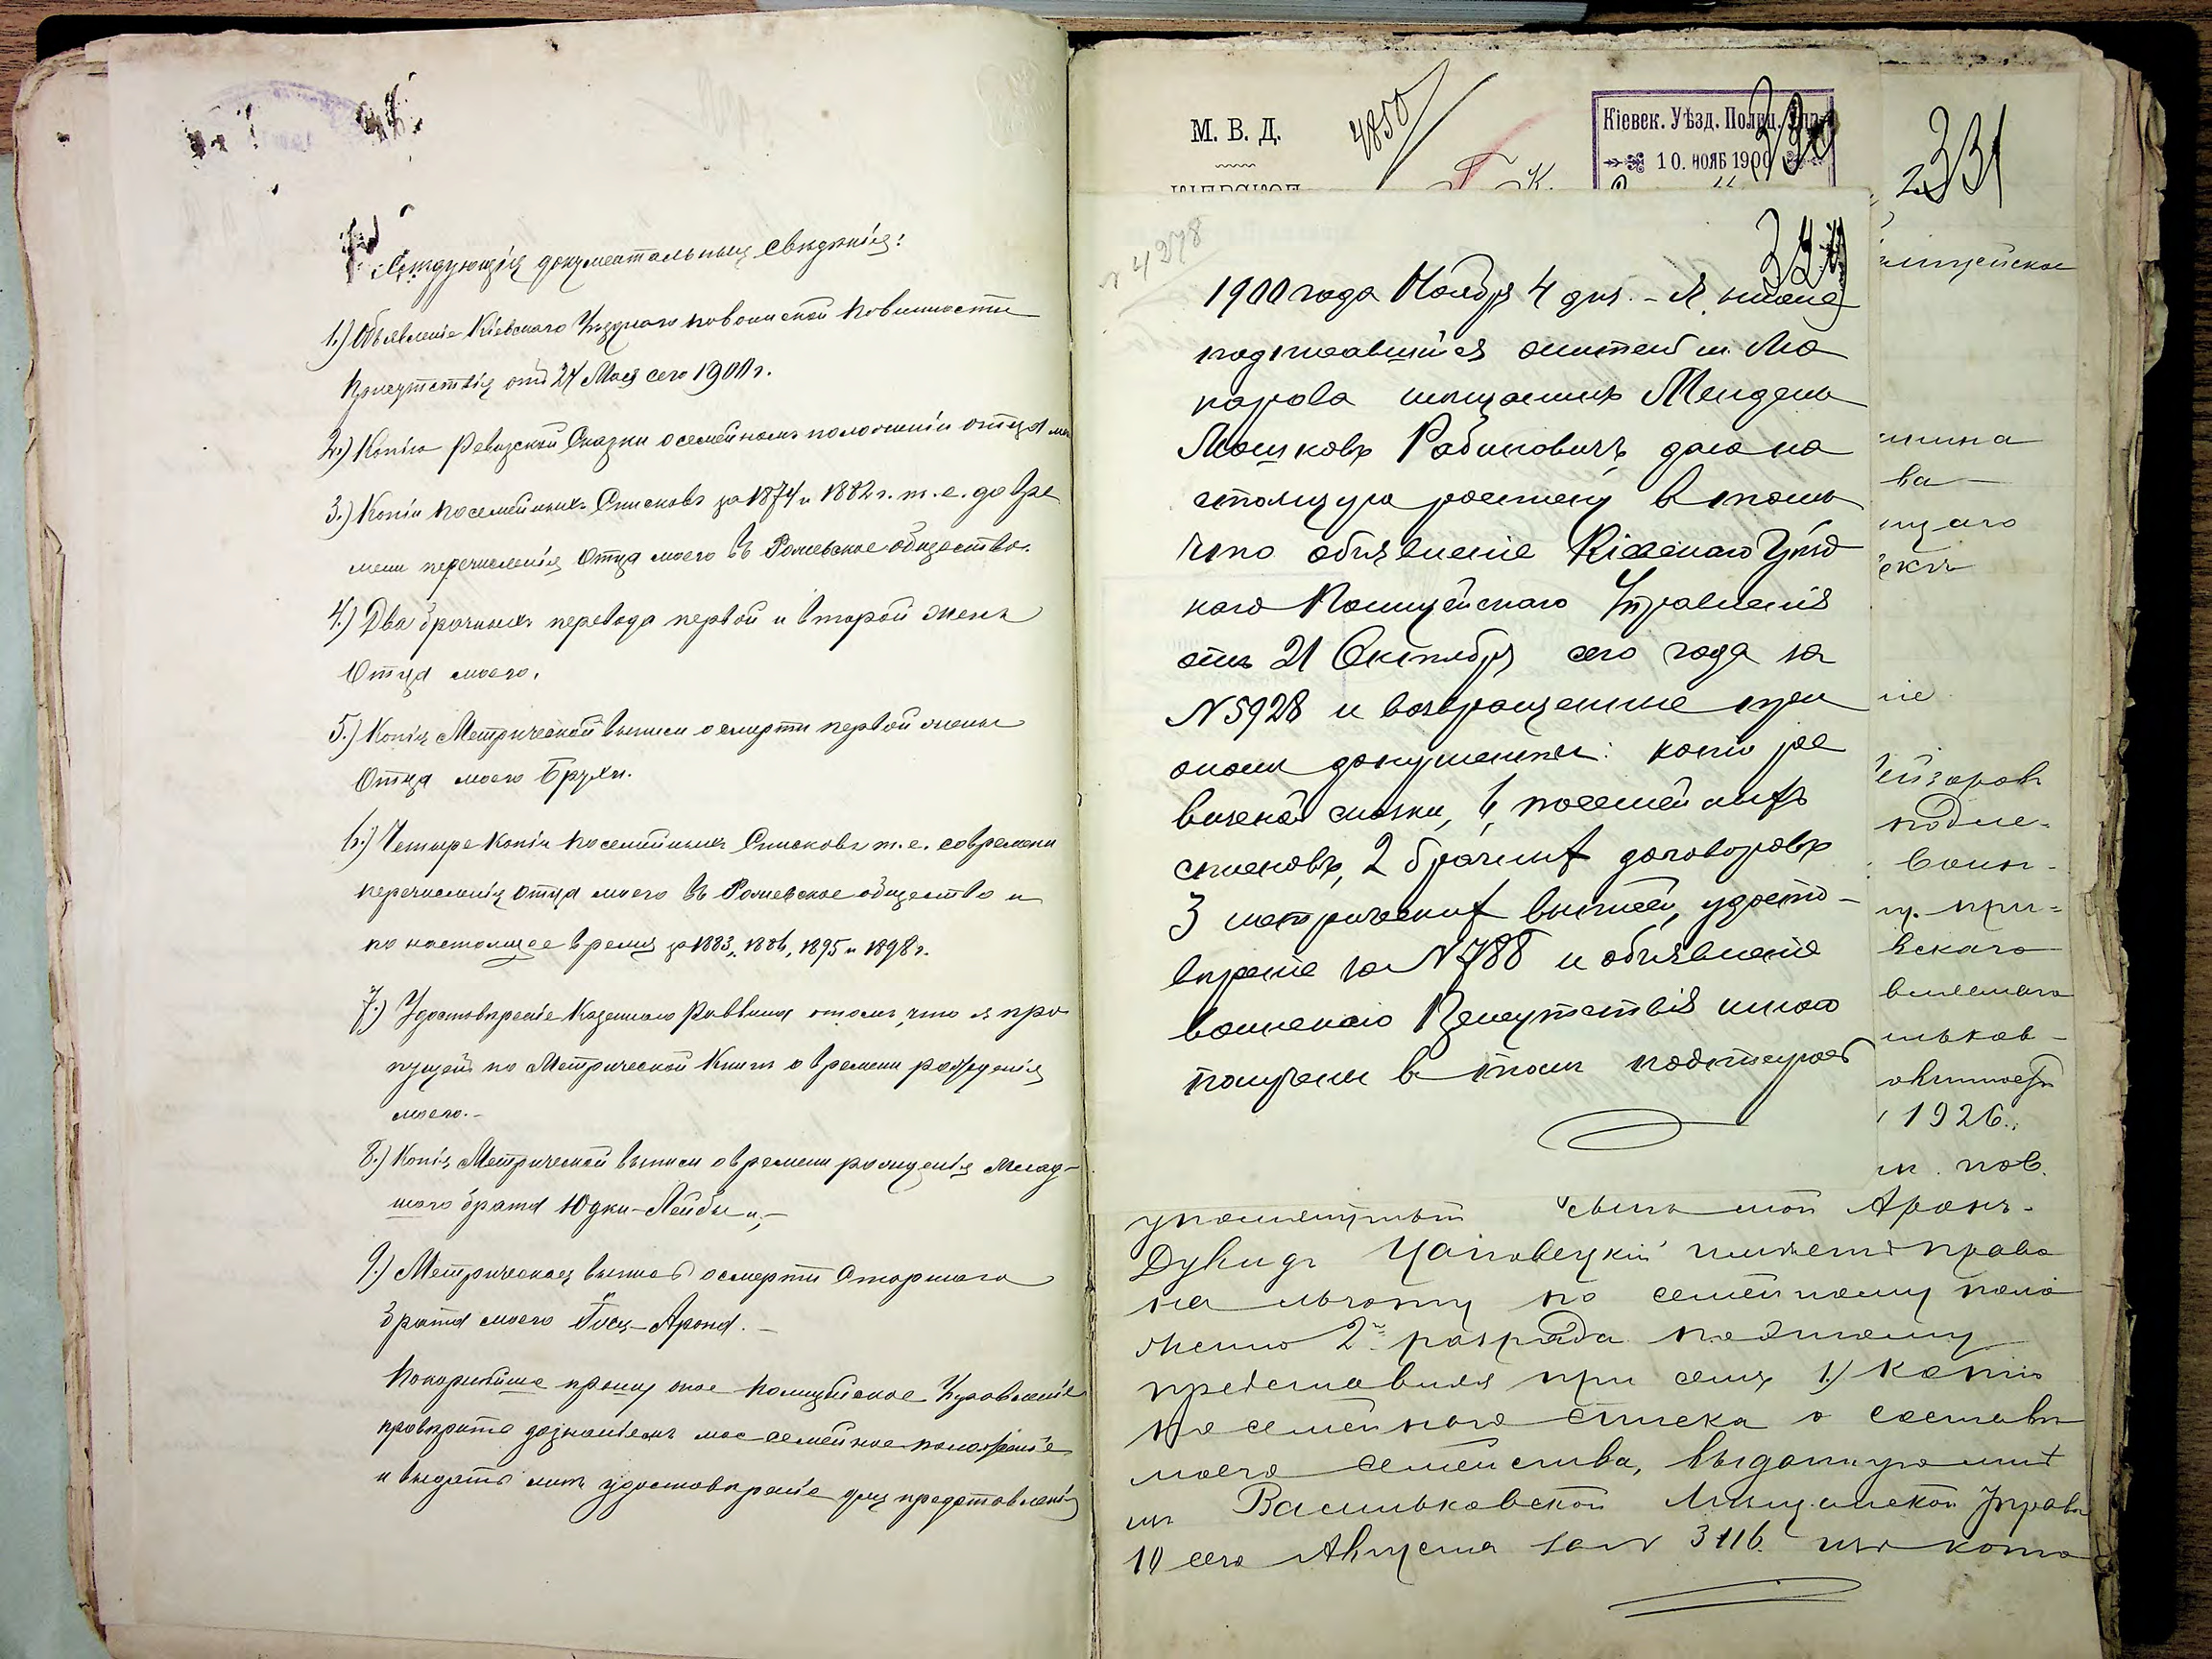 Следующія документальныя свѣдѣнія:
1.) Объявленіе Кіевскаго Уѣзднаго по воинской повинности
Присутствія отъ 24 Мая сего 1900 г.
2.) Копію Ревизской Сказки о семейномъ положеніи отца мо
3.) Копіи посемейныхъ Списковъ за 1874 и 1882 г. т. е. до вре
мени перечисленія Отца моего въ общество.
4.) Два брачныхъ перевода первой и второй жены
Отца моего.
5.) Копія Метрической выписи о смерти первой жены
Отца моего Брухи.
6.) Четыре Копіи посемейныхъ Списковъ т. е. со времени
перечисленія отца моего въ общество и
по настоящее время за 1883, 1886, 1895 и 1898 г.
7.) Удостовѣреніе Казеннаго Раввина о томъ, что я про
пущенъ по Метрической Книгѣ о времени рожденія
моего.-
8.) Копія Метрической выписи о времени рожденія млад-
шаго брата Юдки-Лейбы и,-
9.) Метрическая выпись о смерти Старшаго
брата моего Арона.-
Покорнѣйше прошу оное Полицейское Управленіе
провѣрить дознаніемъ мое семейное положеніе
и выдать мнѣ удостовѣреніе для представленія
М. В. Д.
4850
Кіевск. Уѣзд. Полиц. Упр.
10. НОЯБ 1900
331
4278
1900 года Ноября 4 дня. - Я, ниже
подписавшійся житель м. Ма
карова мѣщанинъ Мендель
Мошковъ Рабиновичъ, даю на
стоящую росписку в томъ
что объявленіе Кіевскаго Уѣзд
наго Полицейскаго Управленія
отъ 21 Октября сего года за
N 5928 и возвращенные при
ономъ документы: копію ре
визской сказки, 6, посемейныхъ
списковъ, 2 брачныхъ договоровъ
3 метрическихъ выписей, удосто-
вѣреніе за N 788 и объявленіе
воинскаго Присутствія мною
получены в томъ подписуюсь
ва
щаго
ніе
подле-
воин-
при-
вскаго
1926.
пов.
упомянутый сынъ мой Аронъ-
Дувидъ имѣетъ право
на льготу по семейному поло
женію 2 разряда поэтому
представляя при семъ 1.) копію
посемейнаго списка о составѣ
моего семейства, выданную мнѣ
изъ Васильковской Мѣщанской Управы
10 сего Августа за N 3116 изъ кото